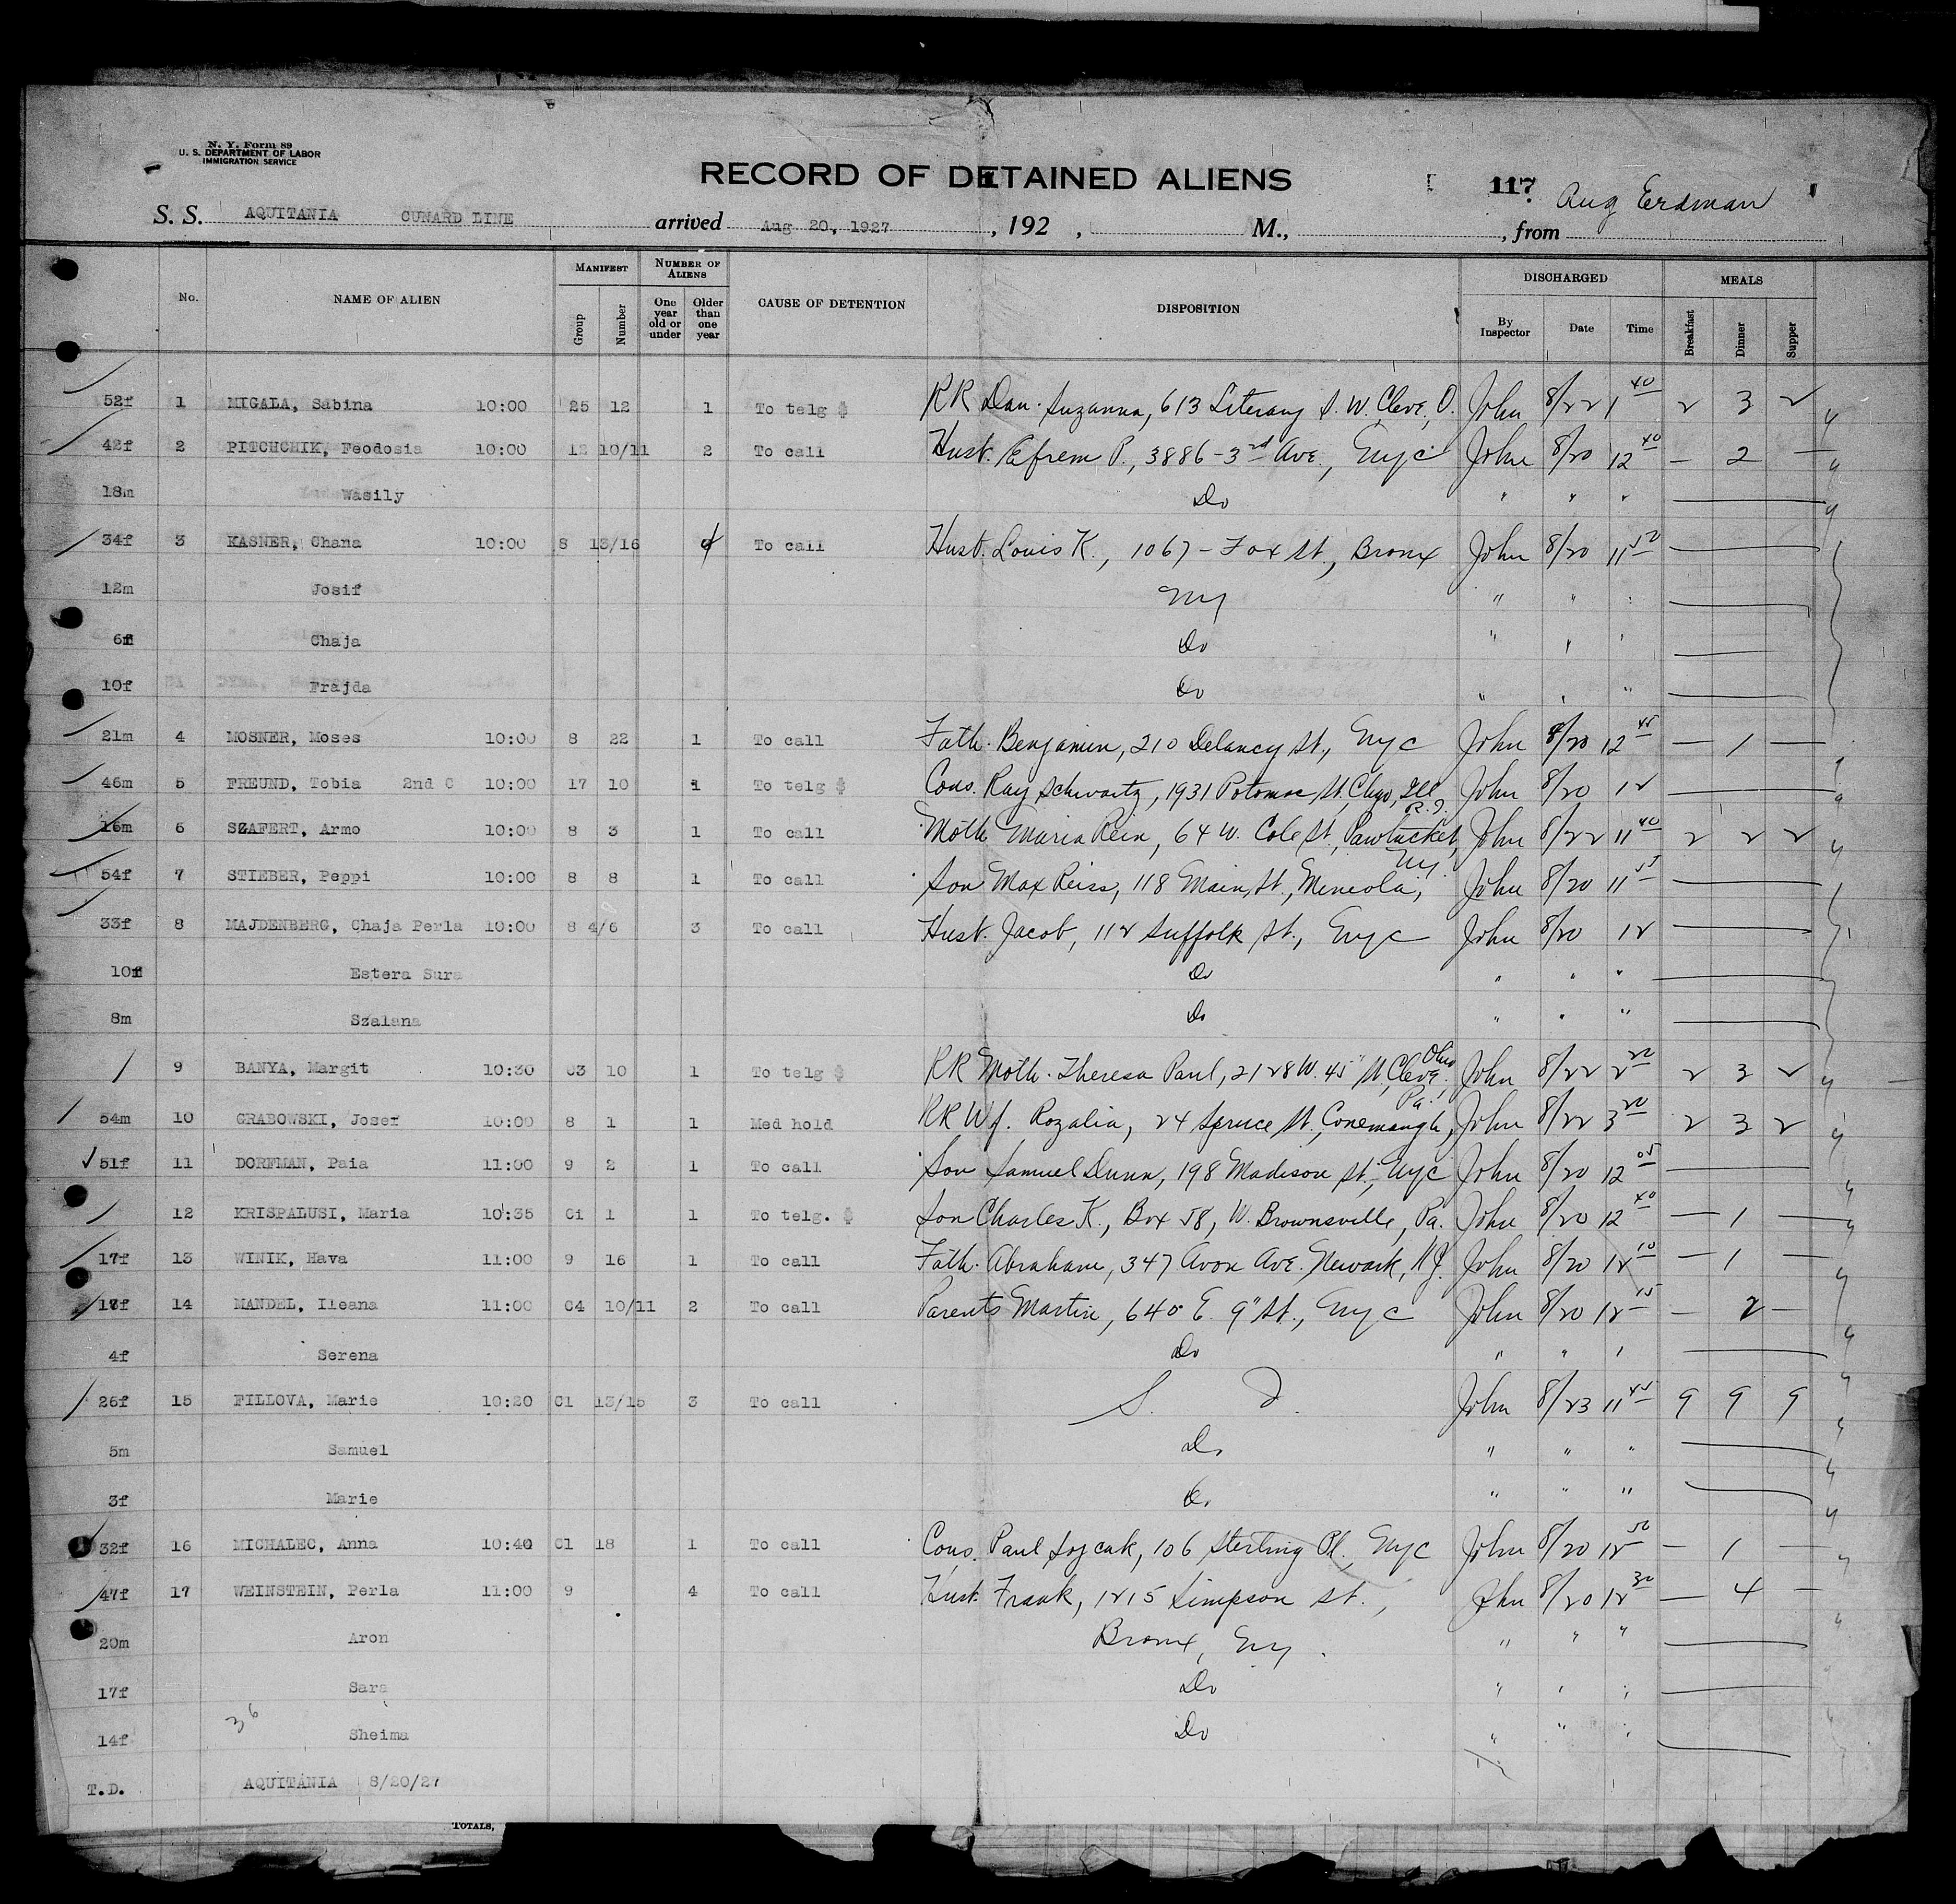 N. Y. Form 89
U. S. DEPARTMENT OF LABOR
IMMIGRATION SERVICE
RECORD OF DETAINED ALIENS 117 Aug Erdman
S. S. AQUITANIA CUNARD LINE arrived Aug 20, 1927, 192 , M., , from
No. NAME OF ALIEN MANIFEST Group Number NUMBER OF ALIENS One year old or under Older than one year CAUSE OF DETENTION DISPOSITION DISCHARGED By Inspector Date Time MEALS Breakfast Dinner Supper
52f 1 MIGALA, Sabina 10:00 25 12 1 To telg $ RR Dau. Suzanna, 613 Literary S. W. Cleve, O. John 8/22 1 40 2 3 2
42f 2 PITCHCHIK, Feodosia 10:00 12 10/11 2 To call Husb. Efrem P., 3886-3rd Ave., NYC John 8/20 12 40 — 2 —
18m Wasily Do " " "
34f 3 KASNER, Chana 10:00 8 13/16 4 To call Husb. Louis K., 1067-Fox St., Bronx John 8/20 11 50
12m Josif NY " " "
6f Chaja Do " " "
10f Frajda Do " " "
21m 4 MOSNER, Moses 10:00 8 22 1 To call Fath. Benjamin, 210 Delancy St., NYC John 8/20 12 45 — 1 —
46m 5 FREUND, Tobia 2nd C 10:00 17 10 1 To telg $ Cous. Ray Schwartz, 1931 Potomac St. Chgo, Ill John 8/20 12
16m 6 SZAFERT, Armo 10:00 8 3 1 To call Moth Maria Rein, 64 W. Cole St., Pawtucket, R.I. John 8/22 11 40 2 2 2
54f 7 STIEBER, Peppi 10:00 8 8 1 To call Son Max Reiss, 118 Main St., Mineola, NY. John 8/20 11
33f 8 MAJDENBERG, Chaja Perla 10:00 8 4/6 3 To call Husb. Jacob, 112 Suffolk St., NYC John 8/20 12
10f Estera Sura Do " " "
8m Szalana Do " " "
9 BANYA, Margit 10:30 C3 10 1 To telg $ RR Moth. Theresa Paul, 2128 W. 45" St, Cleve. Ohio John 8/22 2 20 2 3 2
54m 10 GRABOWSKI, Josef 10:00 8 1 1 Med hold RR Wf. Rozalia, 24 Spruce St., Conemaugh, Pa. John 8/22 3 20 2 3 2
51f 11 DORFMAN, Paia 11:00 9 2 1 To call Son Samuel Dunn, 198 Madison St., NYC John 8/20 12 05
12 KRISPALUSI, Maria 10:35 C1 1 1 To telg. $ Son Charles K., Box 58, W. Brownsville, Pa. John 8/20 12 40 — 1 —
17f 13 WINIK, Hava 11:00 9 16 1 To call Fath. Abraham, 347 Avon Ave. Newark, NJ. John 8/20 12 10 — 1 —
14 MANDEL, Ileana 11:00 C4 10/11 2 To call Parents Martin, 640 E. 9" St., NYC John 8/20 12 15 — 2 —
4f Serena Do " " "
26f 15 FILLOVA, Marie 10:20 C1 13/15 3 To call S. I. John 8/23 11 45 9 9 9
5m Samuel Do " " "
3f Marie Do " " "
32f 16 MICHALEC, Anna 10:40 C1 18 1 To call Cous. Paul 106 Sterling Pl., NYC John 8/20 12 50 — 1 —
47f 17 WEINSTEIN, Perla 11:00 9 4 To call Husb. Frank, 1215 Simpson St., John 8/20 12 30 — 4 —
20m Aron Bronx, NY. " " "
17f Sara Do " " "
14f Sheima Do " " "
36
T.D. AQUITANIA 8/20/27
TOTALS,